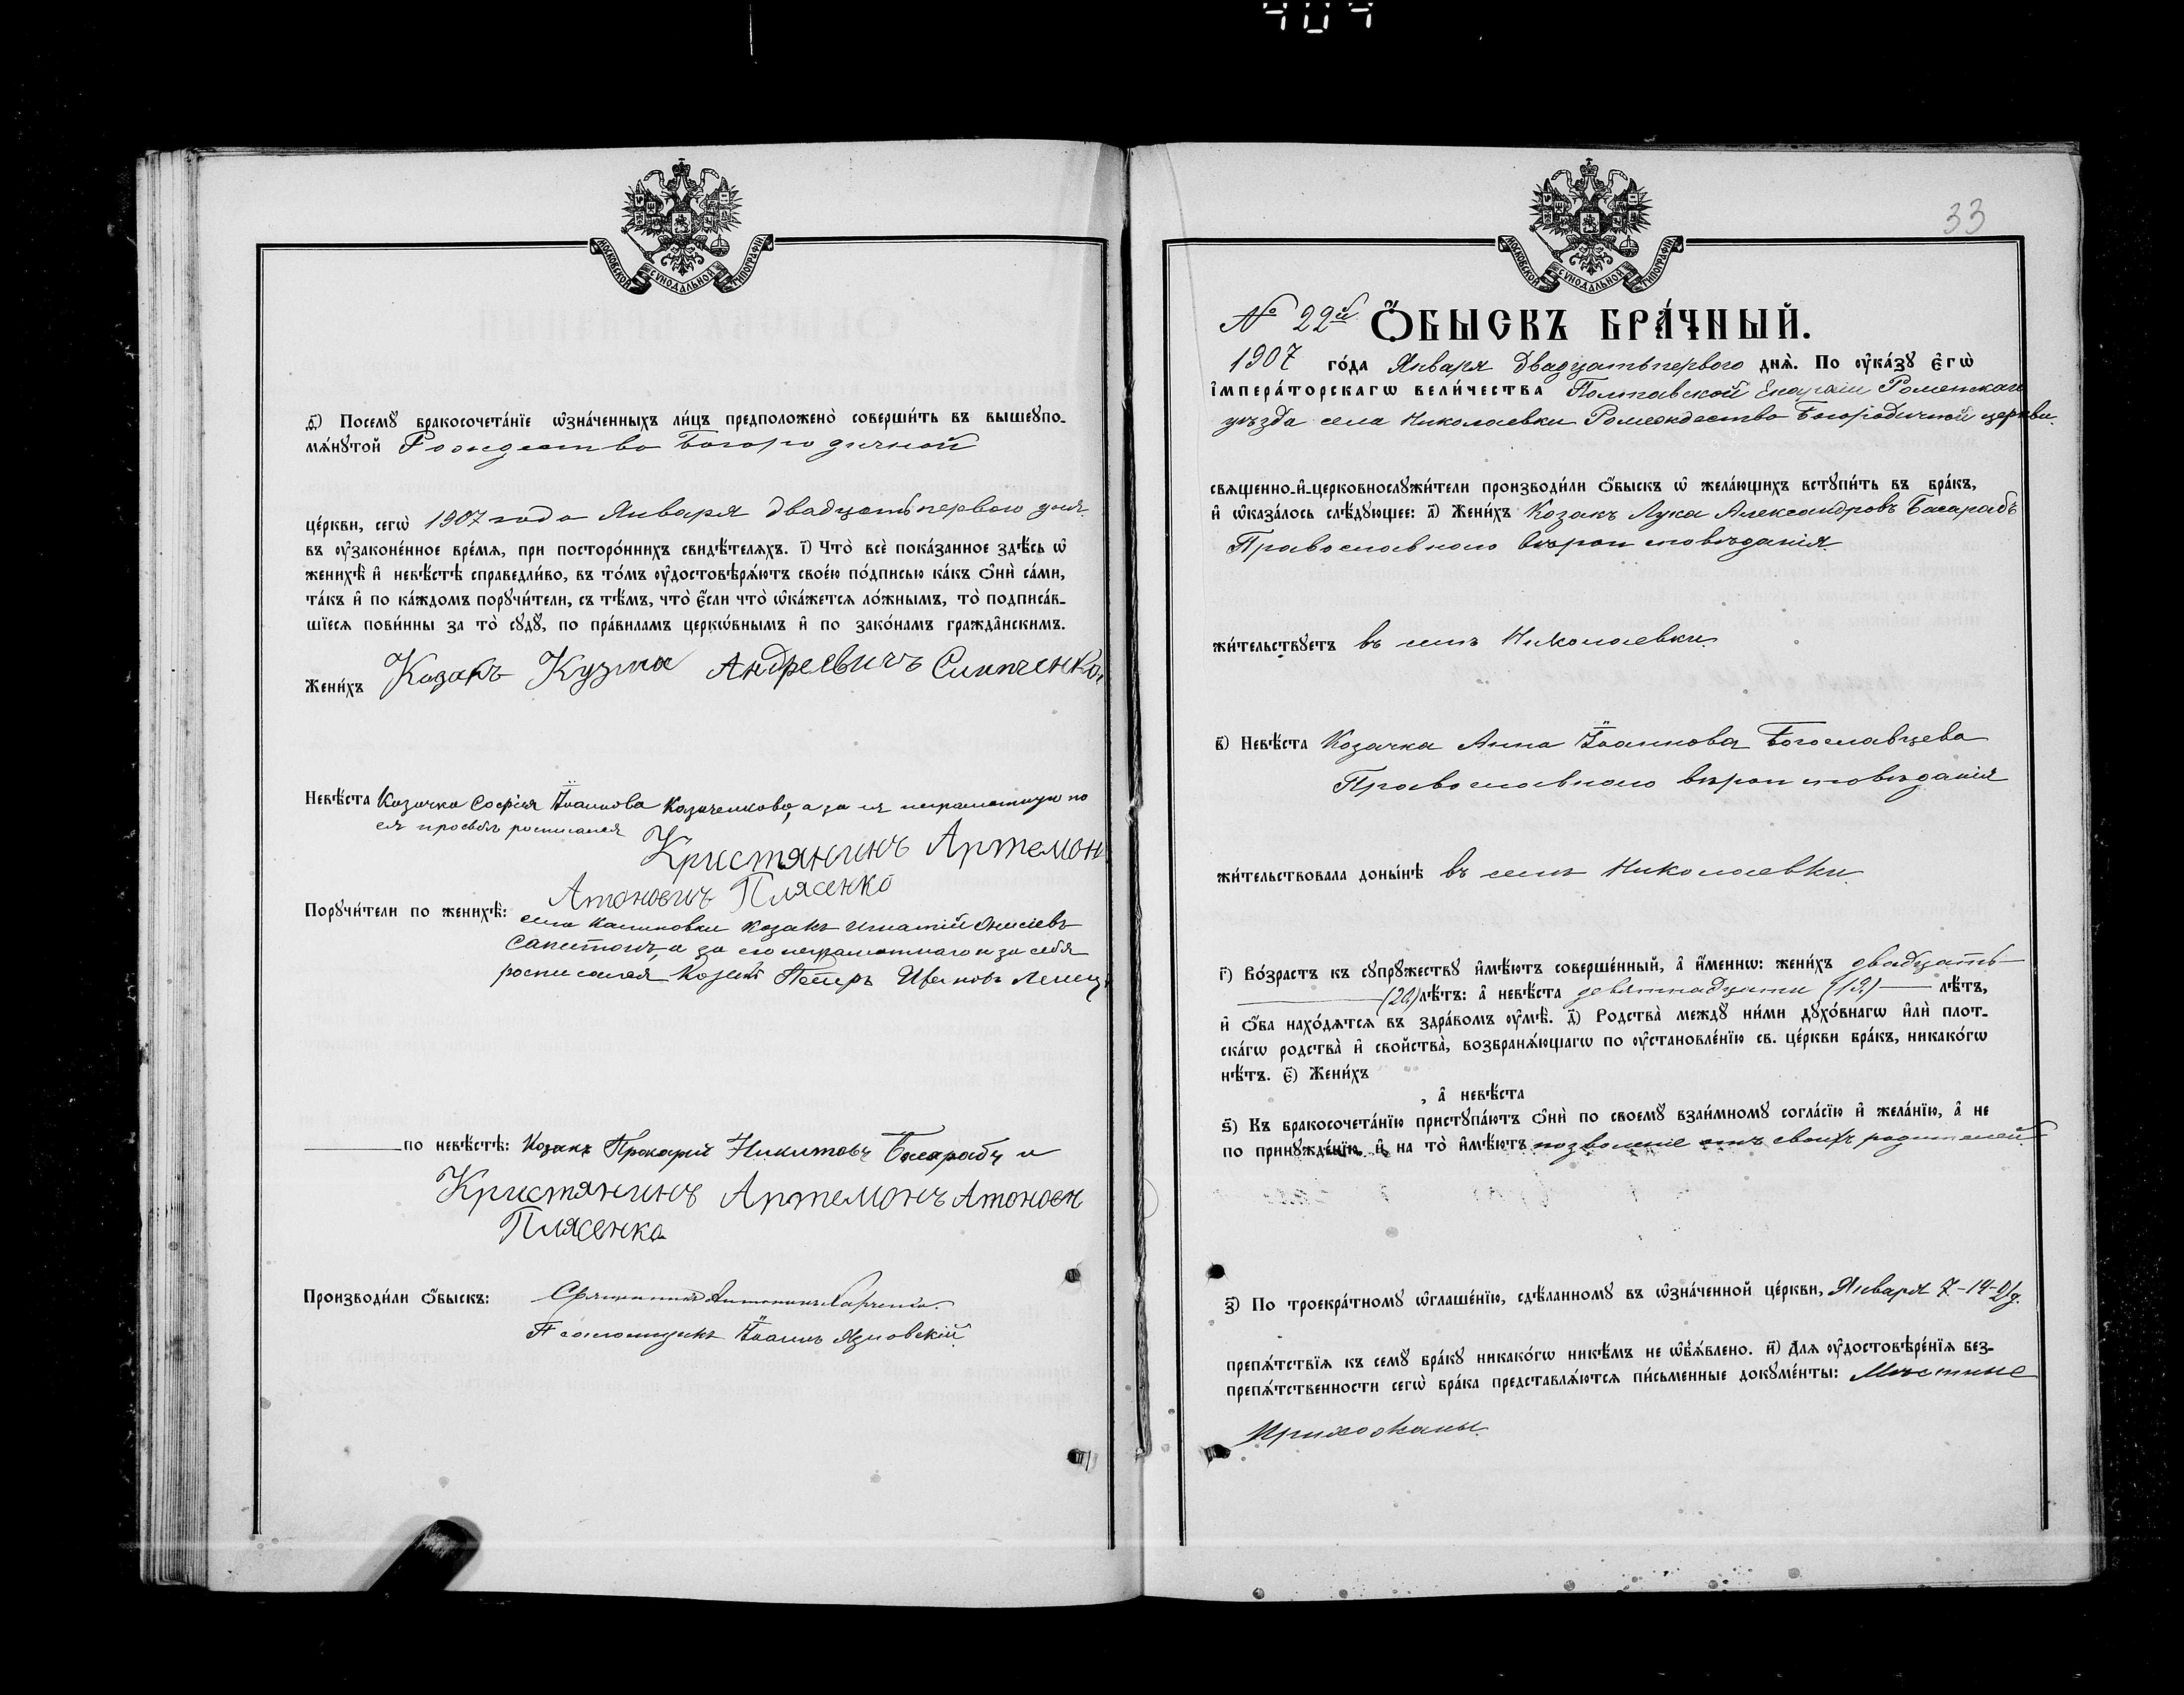 МОСКОВСКОЙ СѴНОДАЛЬНОЙ ТИПОГРАФІИ
д҃) Посемꙋ бракосочета́нїе ѡ҆зна́ченныхъ ли́цъ предположено̀ соверши́ть въ вышеꙋпо-
мѧ́нꙋтой Рождество Богородичной
це́ркви, сегѡ̀ 1907 года Января двадцать первого дня
въ ᲂу҆законе́нное вре́мѧ, при посторо́ннихъ свидѣ́телѧхъ. і҃) Что̀ всѐ пока́занное здѣ́сь ѡ҆
женихѣ̀ и҆ невѣ́стѣ справедли́во, въ то́мъ ᲂу҆достовѣрѧ́ютъ свое́ю по́дписью ка́къ ѻ҆нѝ са́ми,
та́къ и҆ по ка́ждомъ порꙋчи́тели, съ тѣ́мъ, что̀ є҆́сли что̀ ѡ҆ка́жетсѧ ло́жнымъ, то̀ подписа́в-
шїесѧ пови́нны за то̀ сꙋдꙋ̀, по пра́виламъ церкѡ́внымъ и҆ по зако́намъ гражда̂нскимъ.
Жени́хъ Козакъ Кузма Андреевичъ Слипченко
Невѣ́ста Козачка Софія Іоаннова Козаченкова, а за ея неграмотную по
ея просьбѣ росписался
Кристянинъ Артемон
Атоновичъ Плясенко
Порꙋчи́тели по женихѣ̀:
села Калиновки козакъ Игнатій
а за его неграмотнаго и за себя
росписался Козакъ Петръ Ивановъ
по невѣ́стѣ: Козакъ Прокофій Никитовъ Басарабъ и
Кристянинъ Артемонъ Атоновен
Плясенко
Производи́ли ѻ҆́быскъ: Священникъ
Псаломщикъ Іоаннъ Язловскій
33
МОСКОВСКОЙ СѴНОДАЛЬНОЙ ТИПОГРАФІИ
№ 22й ѺБЫСКЪ БРАЧНЫЙ.
1907 го́да Января двадцать первого днѧ̀. По ᲂу҆ка́зꙋ є҆гѡ̀
і҆мпера́торскагѡ вели́чества Полтавской Епархіи Роменскаго
уѣзда села Николаевки Рождество Богородичной церкви.
свѧщенно-и҆-церковнослꙋжи́тели производи́ли ѻ҆́быскъ ѡ҆ жела́ющихъ встꙋпи́ть въ бра́къ,
и҆ ѡ҆каза́лось слѣ́дꙋющее: а҃) Жени́хъ Козакъ Лука Александровъ Басарабъ
Православного вѣроисповѣданія
жи́тельствꙋетъ въ селѣ Николаевки
в҃) Невѣ́ста Козачка Анна Іоаннова Богославцева
Православного вѣроисповѣданія
жи́тельствовала доны́нѣ въ селѣ Николаевки
г҃) Во́зрастъ къ сꙋпрꙋ́жествꙋ и҆мѣ́ютъ соверше́нный, а҆ и҆́меннѡ: жени́хъ двадцать
(20) лѣ́тъ: а҆ невѣ́ста девятнадцати (19) лѣ́тъ,
и҆ ѻ҆́ба нахо́дѧтсѧ въ здра́вомъ ᲂу҆мѣ̀. д҃) Родства̀ междꙋ̀ ни́ми дꙋхо́внагѡ и҆лѝ плот-
ска́гѡ родства̀ и҆ свойства̀, возбранѧ́ющагѡ по ᲂу҆становле́нїю св. це́ркви бра́къ, никако́гѡ
нѣ́тъ. є҃) Жени́хъ
, а҆ невѣ́ста
ѕ҃) Къ бракосочета́нїю пристꙋпа́ютъ ѻ҆нѝ по своемꙋ̀ взаи́мномꙋ согла́сїю и҆ жела́нїю, а҆ не
по принꙋжде́нїю, и҆ на то̀ и҆мѣ́ютъ позволеніе отъ своихъ родителей
з҃) По троекра́тномꙋ ѡ҆глаше́нїю, сдѣ́ланномꙋ въ ѡ҆зна́ченной це́ркви, Января 7-14-21 д.
препѧ́тствїѧ къ семꙋ̀ бра́кꙋ никако́гѡ никѣ́мъ не ѡ҆б̾ѧ́влено. и҃) Длѧ ᲂу҆достовѣре́нїѧ без-
препѧ́тственности сегѡ̀ бра́ка представлѧ́ютсѧ пи́сьменные докꙋме́нты: Мѣстные
прихожаны.